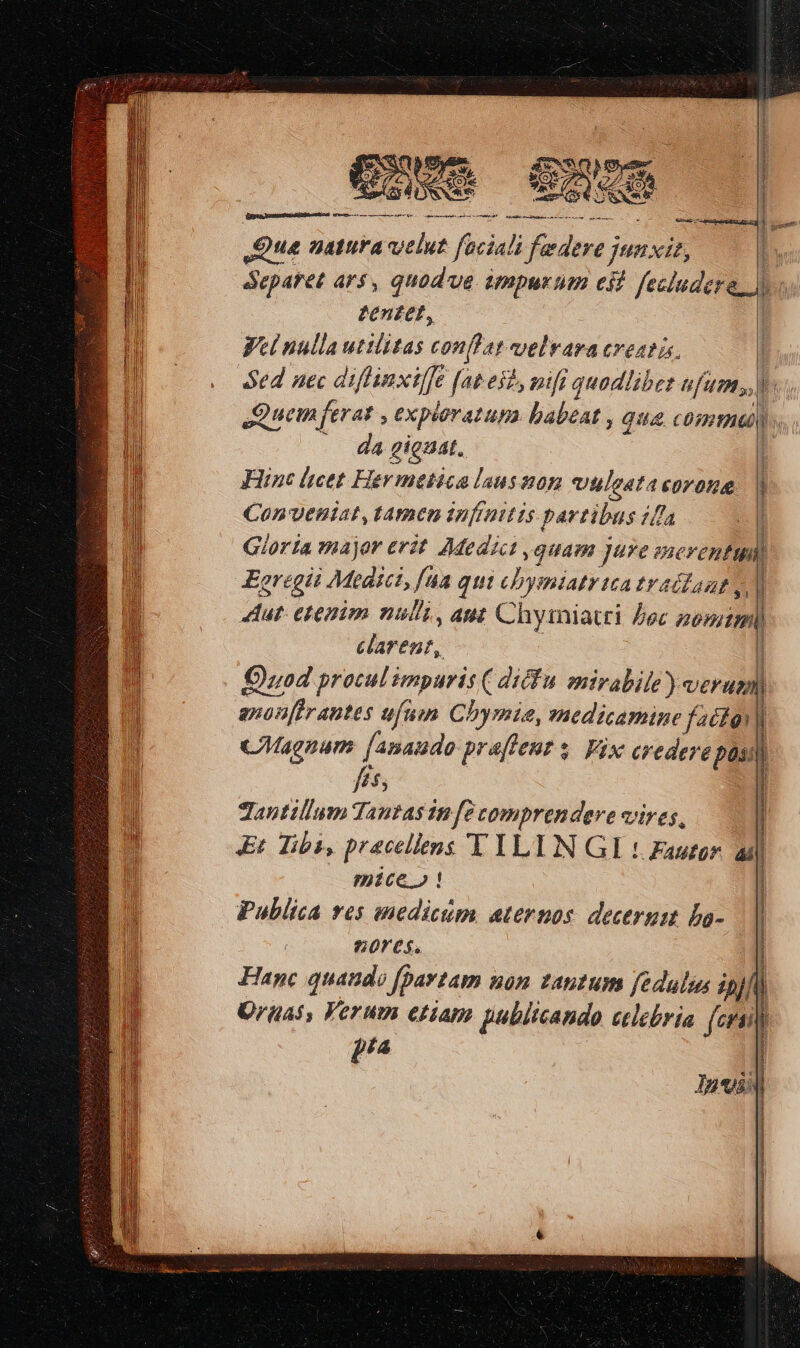 Quæ natura velut ſociali fœdere junxit,
Separet ars, quodve impurum eſt ſecludere
tentet,
Vel nulla utilitas conſtat vel rara creatis.
Sed nec diſtinxiſſe ſat eſt, niſi quodlibet uſum,
Quem ferat, exploratum habeat, quæ
da gignat.
Hinc licet Hermetica laus non vulgata coronæ
Conveniat, tamen infinitis partibus illa
Gloria major erit Medici, quam jure
Egregii Medici, ſua qui chymiatrica tractant,
Aut etenim nulli, aut Chymiatri hoc
clarent,
Quod procul impuris (dictu mirabile) verum
monſtrantes uſum Chymiæ, medicamine facto
Magnum ſanando præſtent; Vix credere
ſis,
Tantillum Tantas in ſe comprendere vires.
Et Tibi, præcellens TILINGI! Fautor
mice!
Publica res medicûm æternos decernit ho-
nores.
Hanc quando ſpartam non tantum ſedulus
Ornas, Verum etiam publicando celebria
pta